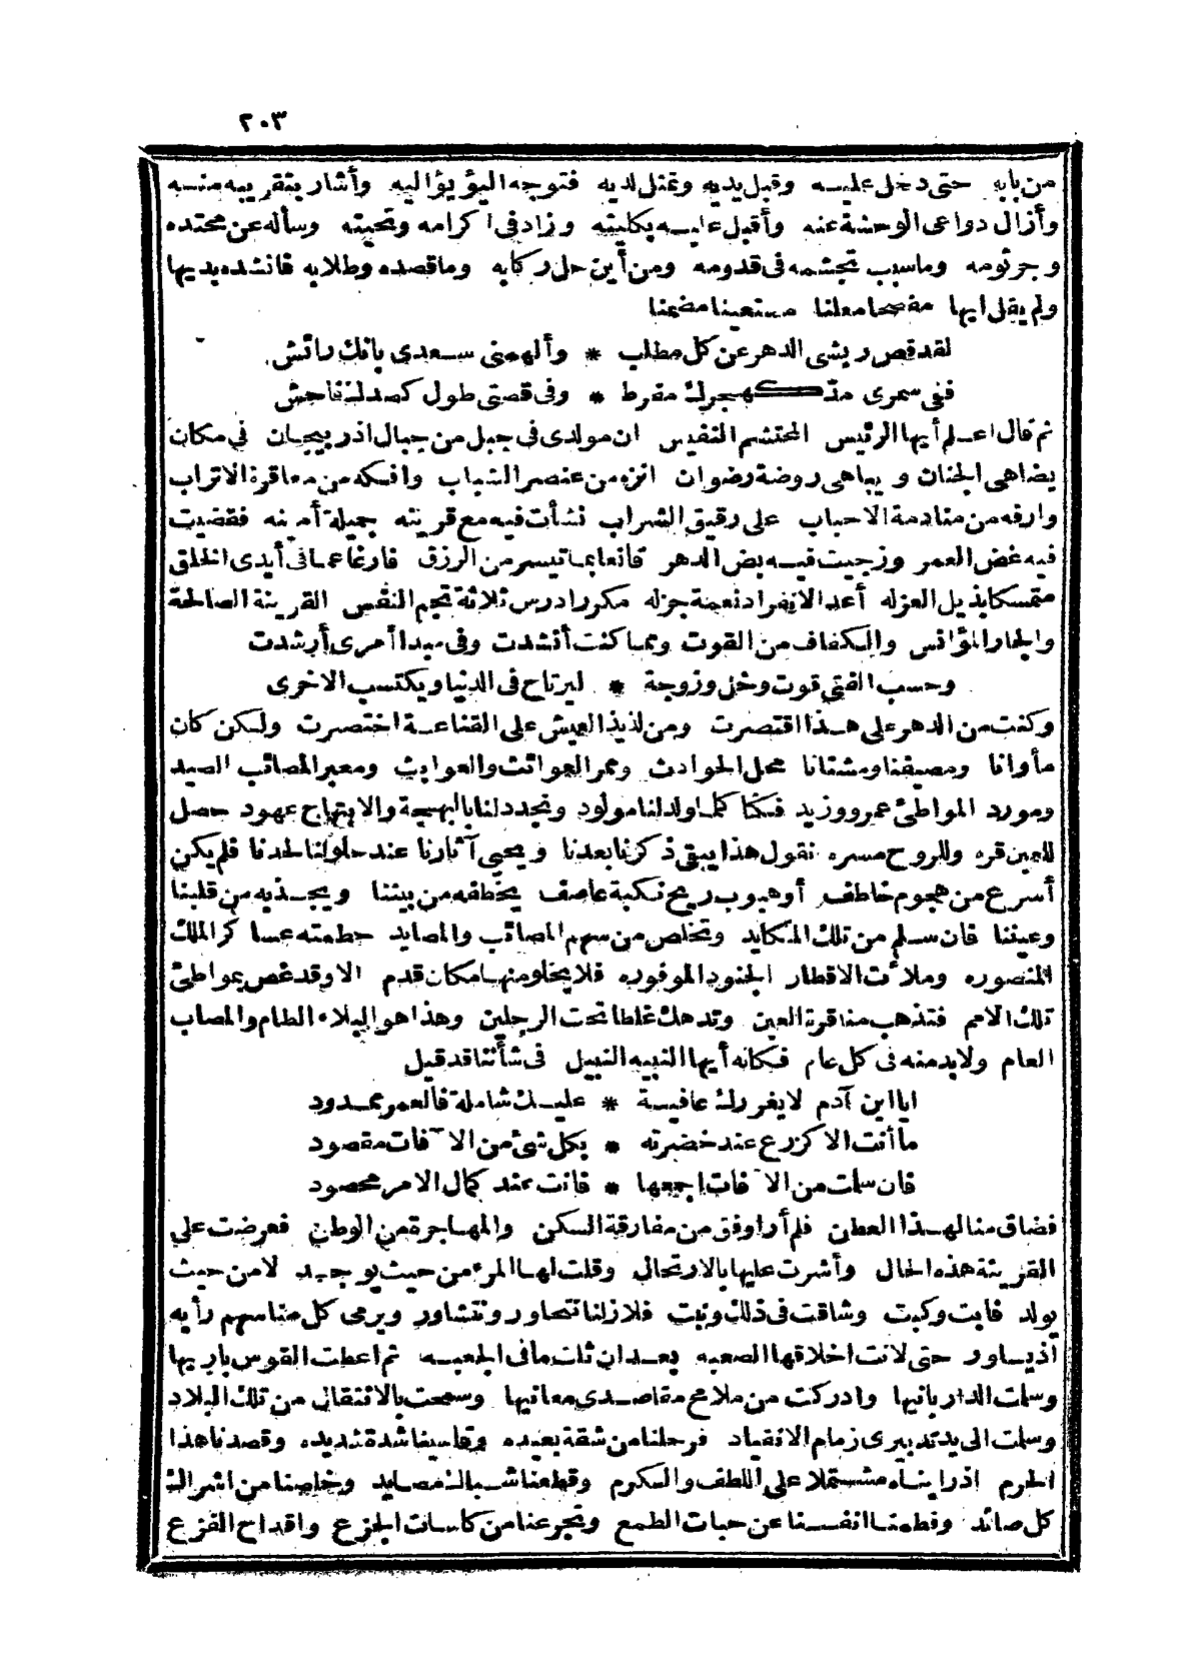 ٢٠٣
من بابه حتى دخل عليه وقبل يديه وتمثل لديه فتوجه اليؤيؤ اليه وأشار بتقريبه منه
وأزال دواعى الوحشة عنه وأقبل عليه بكليته وزاد فى اكرامه وتحيته وسأله عن محتده
وجرثومه وماسبب تجشمه فى قدومه ومن أين حل ركابه وما قصده وطلابه فانشده بديها
ولم يقل ايها مفصحا معلنا مستعينا مضمنا
لقد قص ريشى الدهر عن كل مطلب * وألهمنى سعدى بانك رائش
ففى سمرى مد كهجرك مفرط * وفى قصتى طول كصدك فاحش
ثم قال اعلم أيها الرئيس المحتشم النفيس ان مولدى فى جبل من جبال اذربيجان فى مكان
يضاهى الجنان ويباهى روضة رضوان انزه من عنصر الشباب وافكه من معاقرة الاتراب
وارفه من منادمة الاحباب على رقيق الشراب نشأت فيه مع قرينه جميلة أمينه فقضيت
فيه غض العمر وزجيت فيه بض الدهر قانعا بما تيسر من الرزق فارغا عما فى أيدى الخلق
متمسكا بذيل العزله أعد الانفراد نعمة جزله مكررا درس ثلاثة تجم النفس القرينة الصالحة
والجار المؤانس والكفاف من القوت ومما كنت أنشدت وفى مبدا أمرى أرشدت
وحسب الفتى قوت وخل وزوجة * ليرتاح فى الدنيا ويكتسب الاخرى
وكنت من الدهر على هذا اقتصرت ومن لذيذ العيش على القناعة اختصرت ولكن كان
مأوانا ومصيفنا ومشتانا محل الحوادث وممر العوائث والعوابث ومعبر المصائب الصيد
ومورد المواطئ عمرو وزيد فكنا كلما ولد لنا مولود وتجدد لنا بالبهجة والابتهاج عهود حصل
للعين قره وللروح مسره نقول هذا يبقى ذكرنا بعدنا ويحيى آثارنا عند حلولنا لحدنا فلم يكن
أسرع من هجوم خاطف أو هبوب ريح نكبة عاصف يخطفه من بيننا ويجذبه من قلبنا
وعيننا فان سلم من تلك المكايد وتخلص من سهم المصائب والمصايد حطمته عساكر الملك
المنصوره وملأت الاقطار الجنود الموفوره فلا يخلو منها مكان قدم الا وقد غص بمواطئ
تلك الامم فتذهب منا قرة العين وتدهك غلطا تحت الرجلين وهذا هو البلاء الطام والمصاب
العام ولابد منه فى كل عام فكانه أيها النبيه النبيل فى شأننا قد قيل
ايا ابن آدم لا يغررك عافية * عليك شاملة فالعمر ممدود
ما أنت الا كزرع عند خضرته * بكل شئ من الآفات مقصود
فان سلمت من الآفات اجمعها * فانت عند كمال الامر محصود
فضاق منا لهذا العطن فلم أر اوفق من مفارقة السكن والمهاجرة من الوطن فعرضت على
القرينة هذه الحال وأشرت عليها بالارتحال وقلت لها المرء من حيث يوجد لا من حيث
يولد فابت وكبت وشاقت فى ذلك ونبت فلا زلنا نتحاور ونتشاور ويرمى كل منا سهم رأيه
اذ يساور حتى لانت اخلاقها الصعبه بعد ان ثلت ما فى الجعبه ثم اعطت القوس باريها
وسلمت الدار بانيها وادركت من ملامح مقاصدى معانيها وسمحت بالانتقال من تلك البلاد
وسلمت الى يد تدبيرى زمام الانقياد فرحلنا من شقة بعيده وقاسينا شدة شديده وقصدنا هذا
الحرم اذ رايناه مشتملا على اللطف والكرم وقطعنا شبا المصايد وخلصنا من اشراك
كل صائد وفطمنا انفسنا عن حبات الطمع وتجرعنا من كاسات الجزع واقداح الفزع